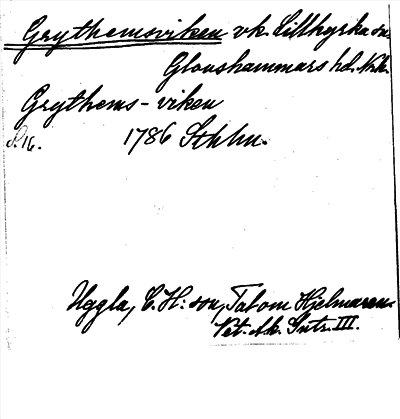 Grythemsviken vk. Lillkyrka sn
Glanshammars hd. Nke.
Grythems-viken
S. 16. 1786 Sthlm.
Uggla, C. H:son, Tal om Hjelmaren.
Vet. Ak. Intr. III.